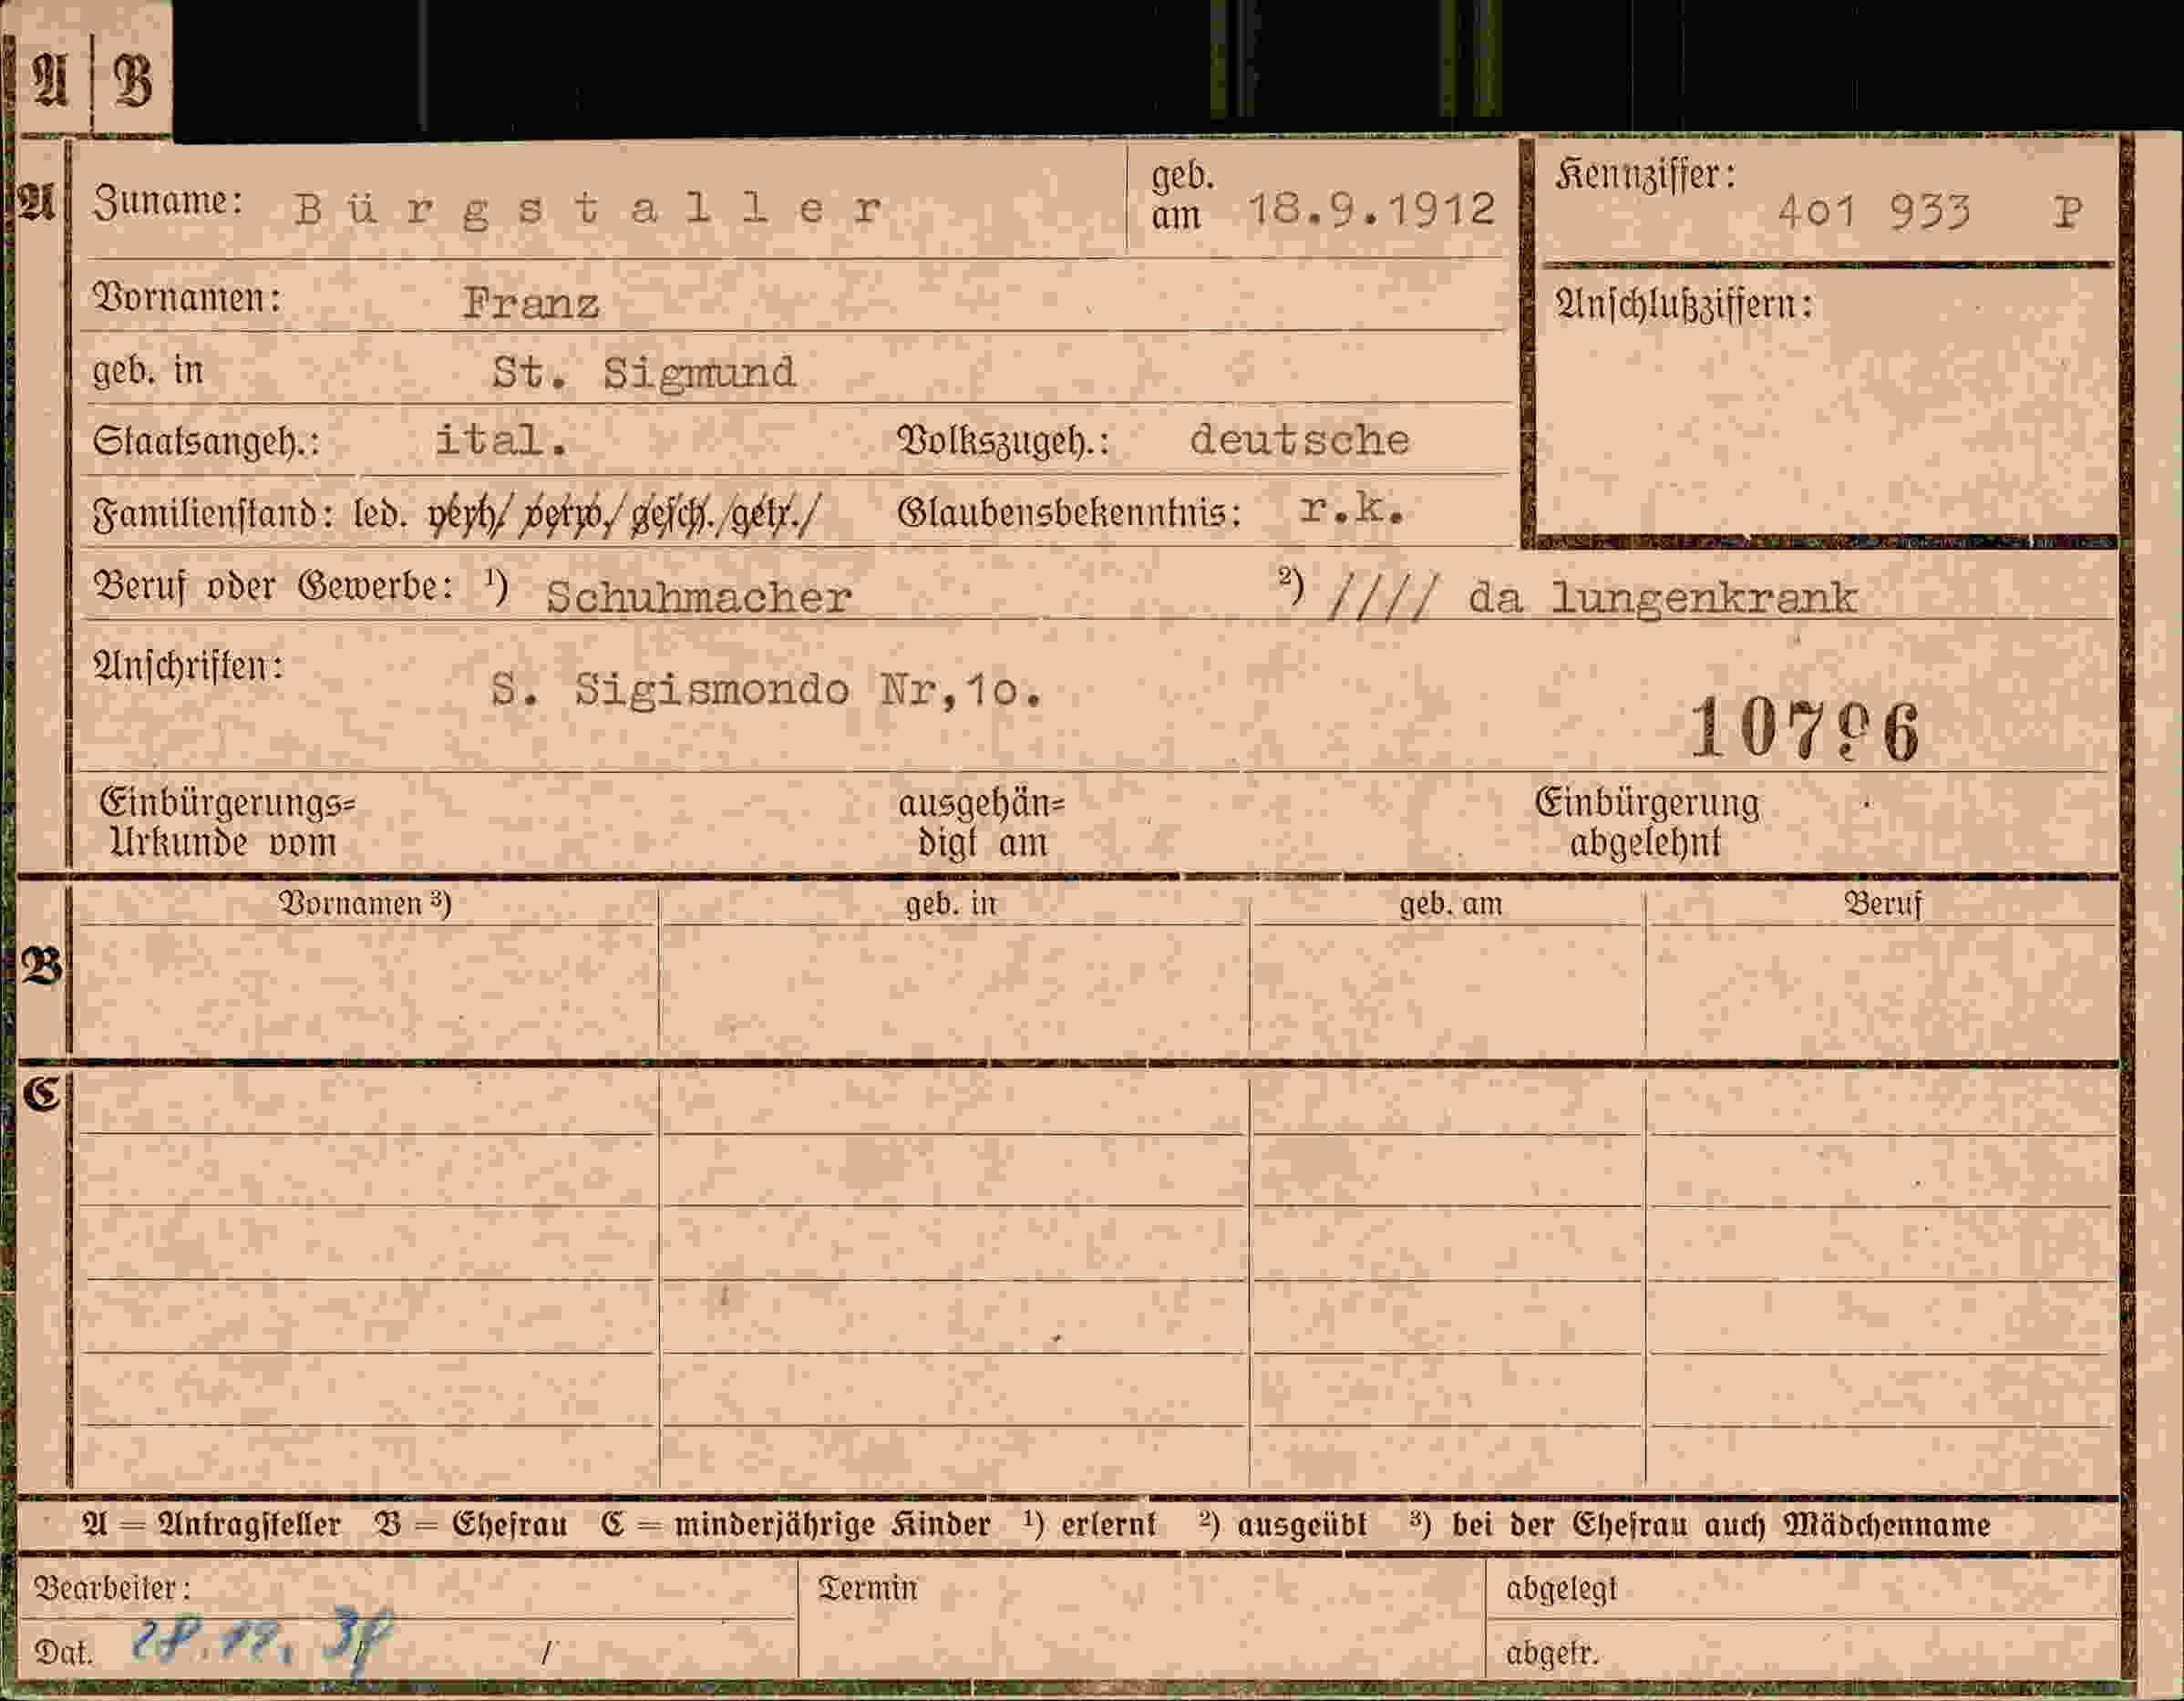 A B
A Zuname: Bürgstaller geb. am 18.9.1912 Kennziffer: 4o1 933 P
Vornamen: Franz Anschlußziffern:
geb. in St. Sigmund
Staatsangeh.: ital. Volkszugeh.: deutsche
Familienstand: led. verh/ verw./ gesch./getr./ Glaubensbekenntnis: r.k.
Beruf oder Gewerbe: ¹) Schuhmacher ²) //// da lungenkrank
Anschriften: S. Sigismondo Nr,1o.
Einbürgerungs=
Urkunde vom
ausgehän=
digt am
Einbürgerung
abgelehnt
B Vornamen ³) geb. in geb. am Beruf
C
A = Antragsteller B = Ehefrau C = minderjährige Kinder ¹) erlernt ²) ausgeübt ³) bei der Ehefrau auch Mädchenname
Bearbeiter: Termin abgelegt
Dat. / abgetr.